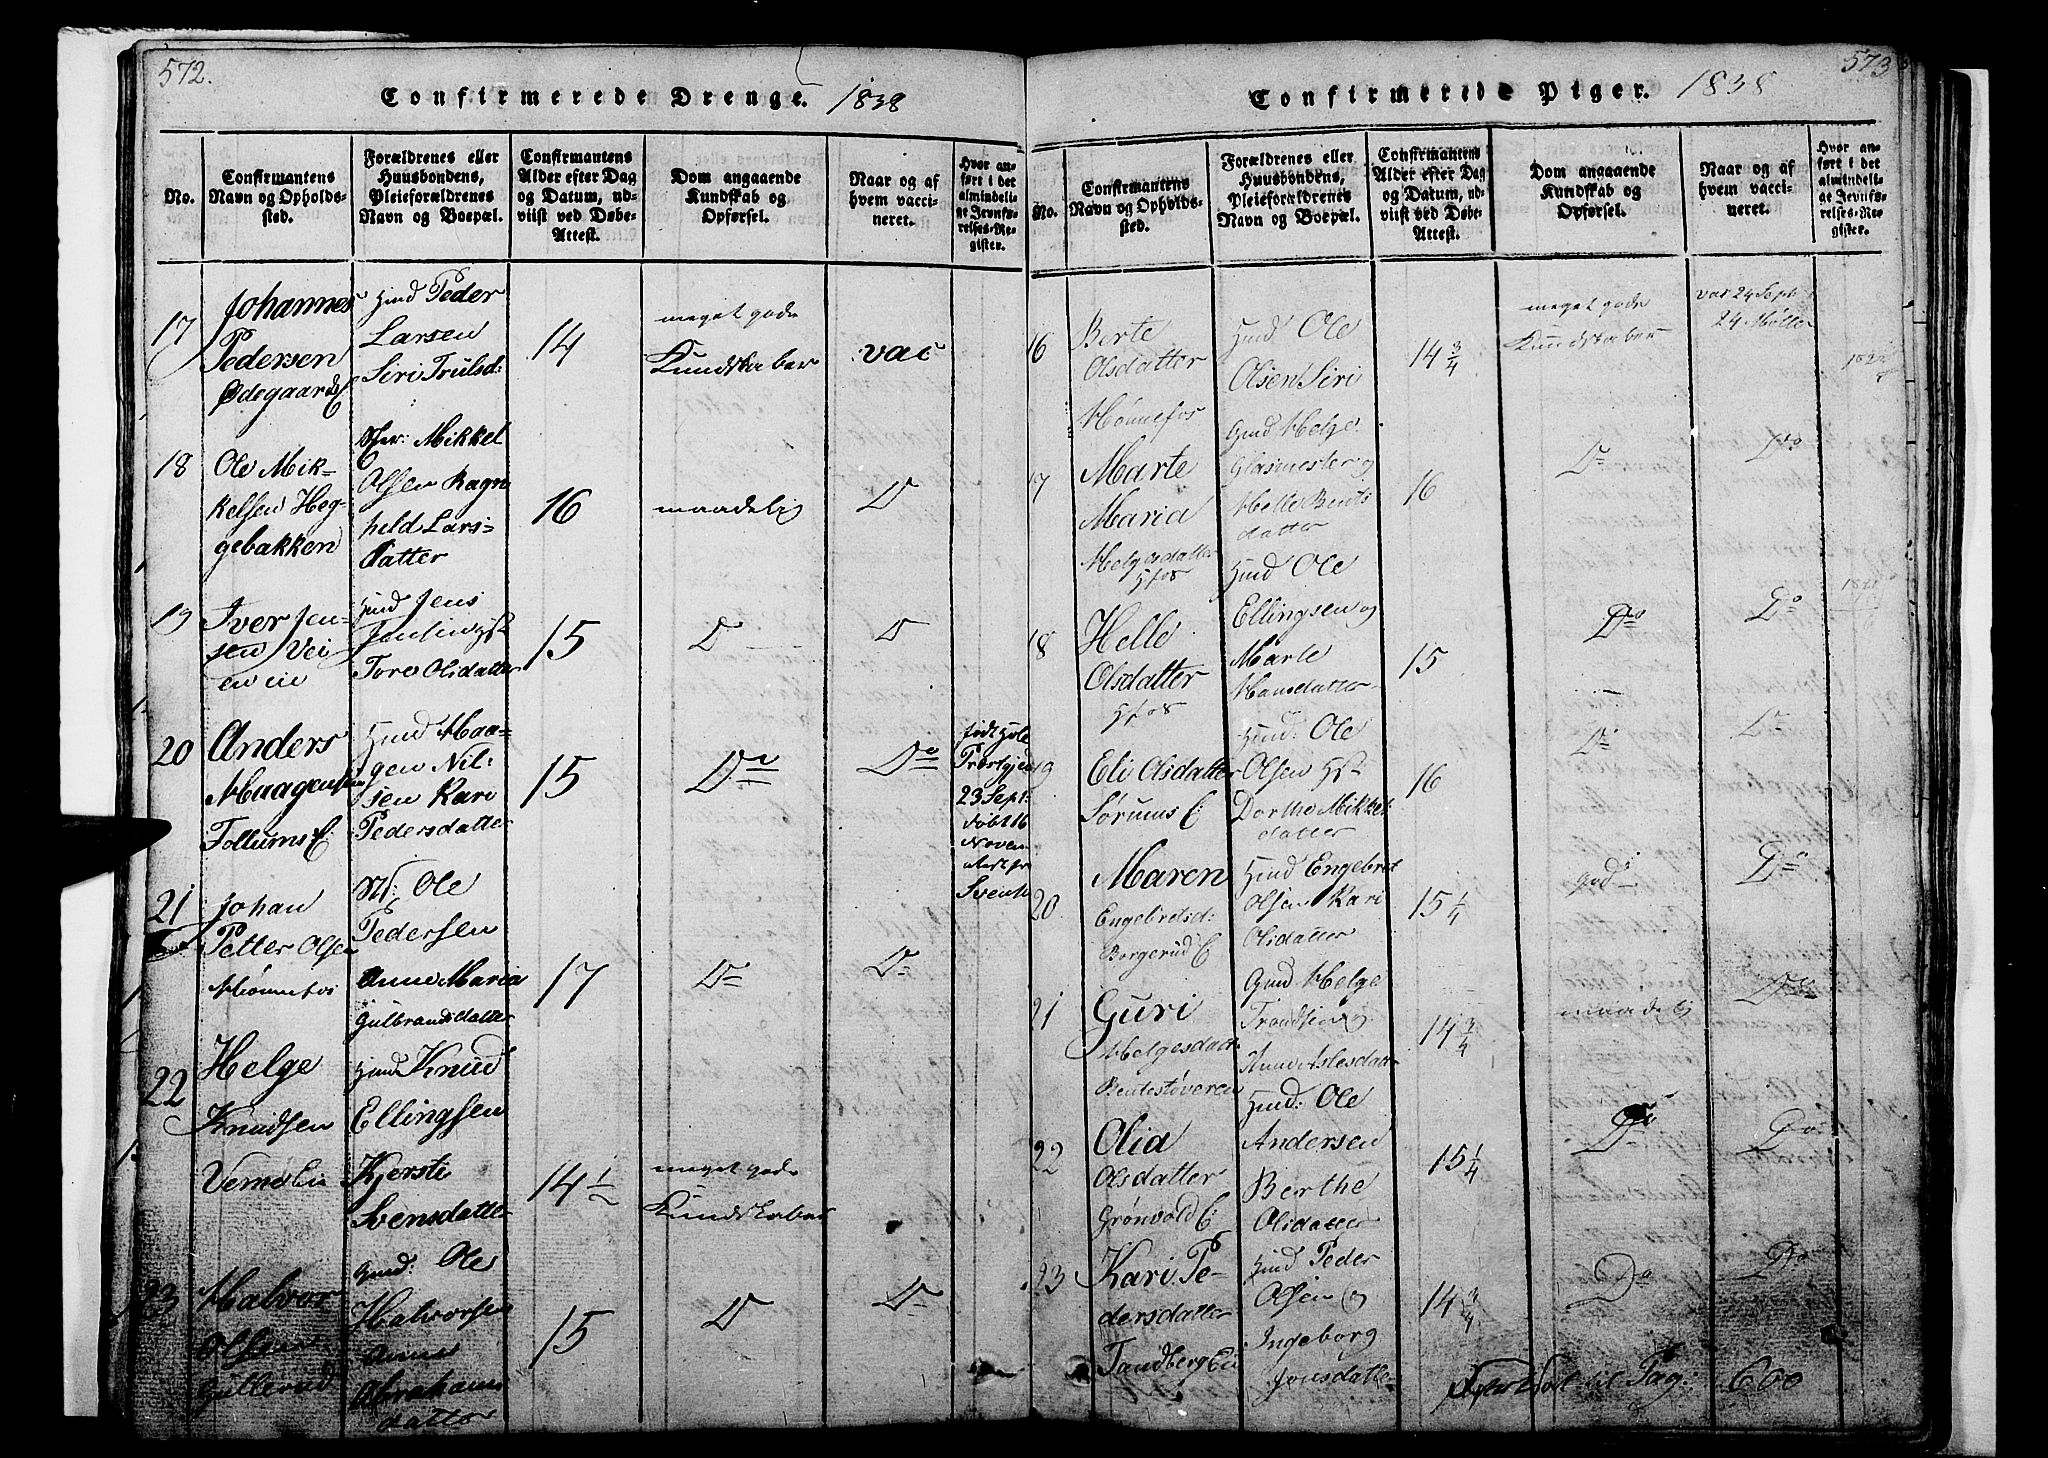 572.
Confirmerede Drenge. 1838
No.
Confirmantens
Navn og Opholds-
sted.
Forældrenes eller
Huusbondens,
Pleieforældrenes
Navn og Boepæl.
Confirmantens
Alder efter Dag
og Datum, ud-
viist ved Døbe-
Attest.
Dom angaaende
Kundskab og
Opførsel.
Naar og af
hvem vacci-
neret.
Hvor an-
ført i det
almindeli-
ge Jevnfø-
relses-Re-
gister.
17
Johannes
Pedersen
Ødegaards
Hmd Peder
Larsen
Siri Trulsd:
14
meget gode
Kundskaber
vac
18
Ole Mik-
kelsen Heg-
gebakken
Mikkel
Olsen Ragn
hild Lars-
datter
16
maadelig
D
19
Iver Jen-
sen Vei
en eie
Hmd Jens
Tore Olsdatter
15
D
D
20
Anders
Maagensen
Follums E
Hmd Maa-
gen Nil-
sen Kari
Pedersdatter
15
Do
Do
født Hole
Præstgjeld
23 Sept:
døbt 16
Novem
21
Johan
Petter Olsen
Hønnefos
Ole
Pedersen
Anne Maria
Gulbransdatter
17
Do
Do
22
Helge
Knudsen
Hmd Knud
Ellingsen
Kjersti
Svensdatter
14 1/2
meget gode
Kundskaber
23
Halvor
Olsen
Gullerud
Gmd: Ole
Halvorsen
Anne
Abrahams
datter
15
D
Do
573
Confirmerede Piger. 1838
No.
Confirmantens
Navn og Opholds-
sted.
Forældrenes eller
Huusbondens,
Pleieforældrenes
Navn og Boepæl.
Confirmantens
Alder efter Dag
og Datum, ud-
viist ved Døbe-
Attest.
Dom angaaende
Kundskab og
Opførsel.
Naar og af
hvem vacci-
neret.
Hvor an-
ført i det
almindeli-
ge Jevnfø-
relses-Re-
gister.
16
Berte
Olsdatter
Hønnefos
Hmd Ole
Olsen Siri
14 3/4
meget gode
Kundskaber
vac 24 Sept
24 Møller
17
Marte
Maria
Helgesdatter
Hfos
Gmd Helge
Glasmester og
Helle Bents
datter
16
Do
Do
18
Helle
Olsdatter
Hfos
Hmd Ole
Ellingsen og
Marte
Hansdatter
15
Do
Do
19
Eli Olsdatter
Sørums E
Hmd: Ole
Olsen Hst
Dorthe Mikkels
datter
16
Do
Do
20
Maren
Engebretsd:
Borgerud E
Hmd Engebret
Olsen Kari
Olsdatter
15 1/4
god
Do
21
Guri
Helgesdatter
Bentestøveren
Gmd Helge
Trondsen og
Anne Aslesdatter
14 3/4
maadelig
Do
22
Olia
Olsdatter
Grønvold E
Hmd: Ole
Andersen
Berthe
Olsdatter
15 1/4
Do
Do
23
Kari Pe-
dersdatter
Tandberg Ei
Hmd Peder
Olsen og
Ingeborg
Jonsdatter
14 3/4
Do
Do
til Pag: 600